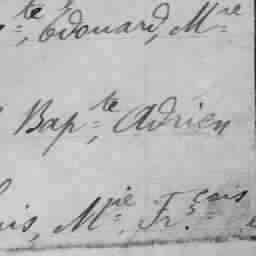 te, Edouard, Mre
Bapte, Adrien
is, Mpie Fr.çois